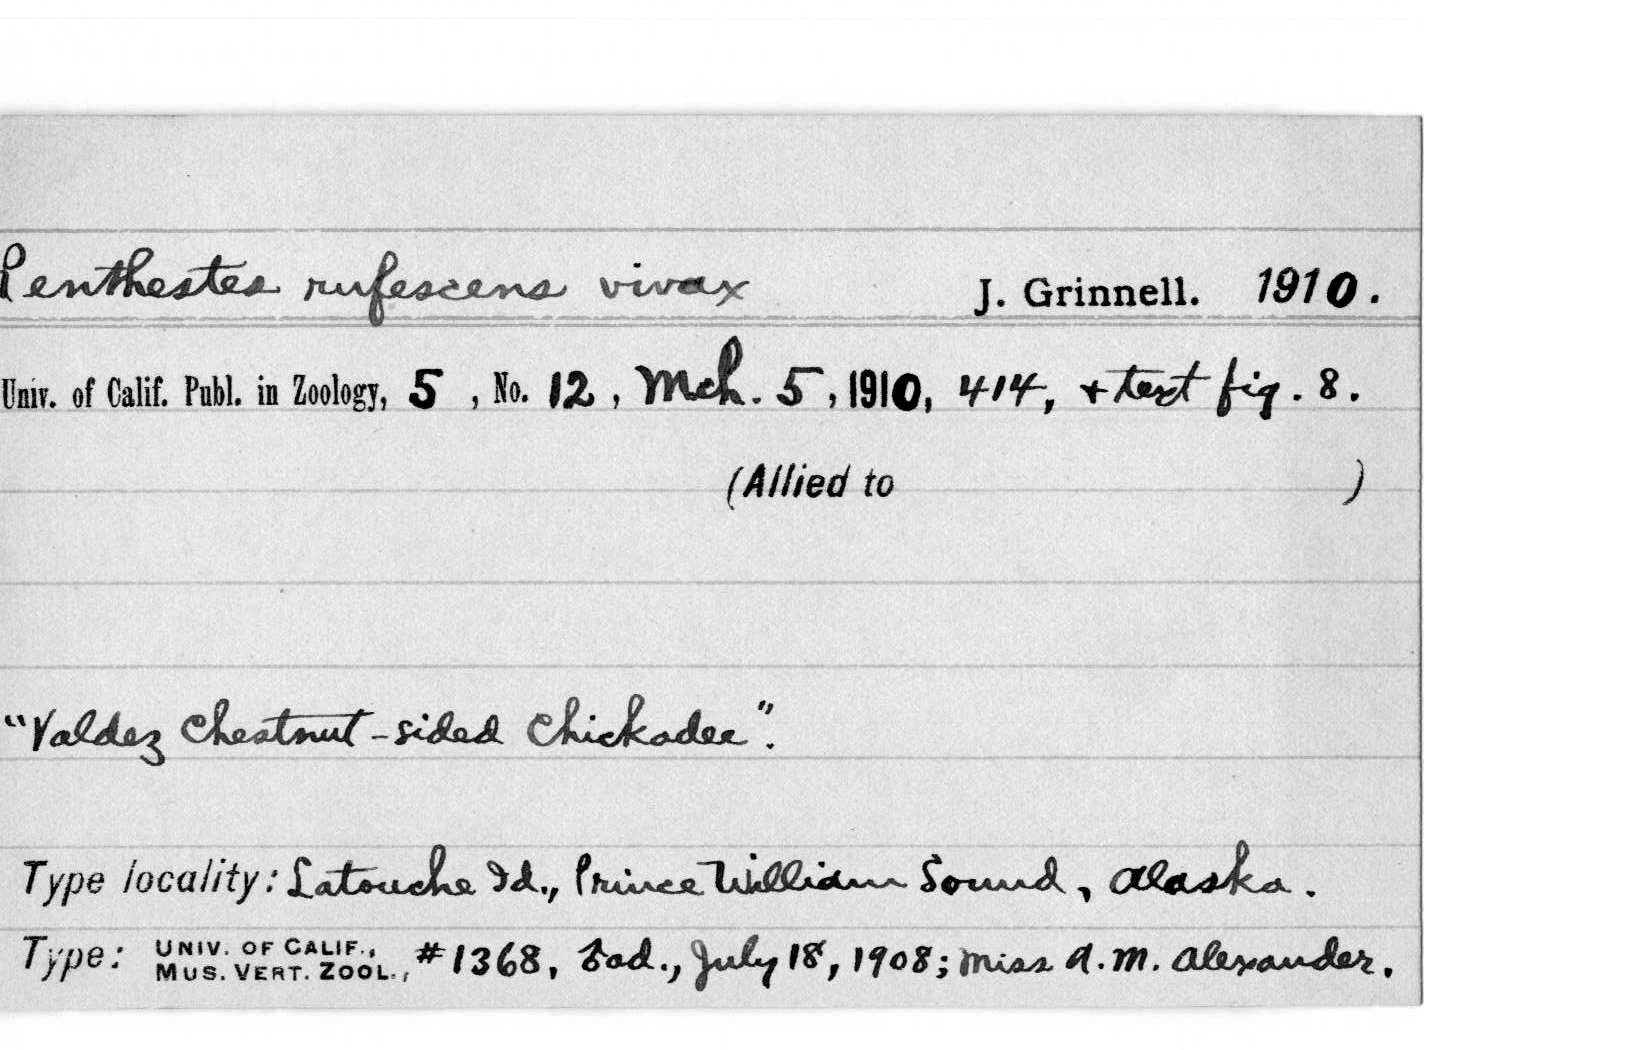 Penthestes rufescens vivax J. Grinnell. 1910.
Univ. of Calif. Publ. in Zoology, 5, No. 12, Mch. 5, 1910, 414, + text fig. 8.
(Allied to )
"Valdez Chestnut-sided Chickadee".
Type locality: Latouche Id., Prince William Sound, Alaska.
Type: UNIV. OF CALIF., MUS. VERT. ZOOL., #1368, ♂ad., July 18, 1908; Miss A. M. Alexander.